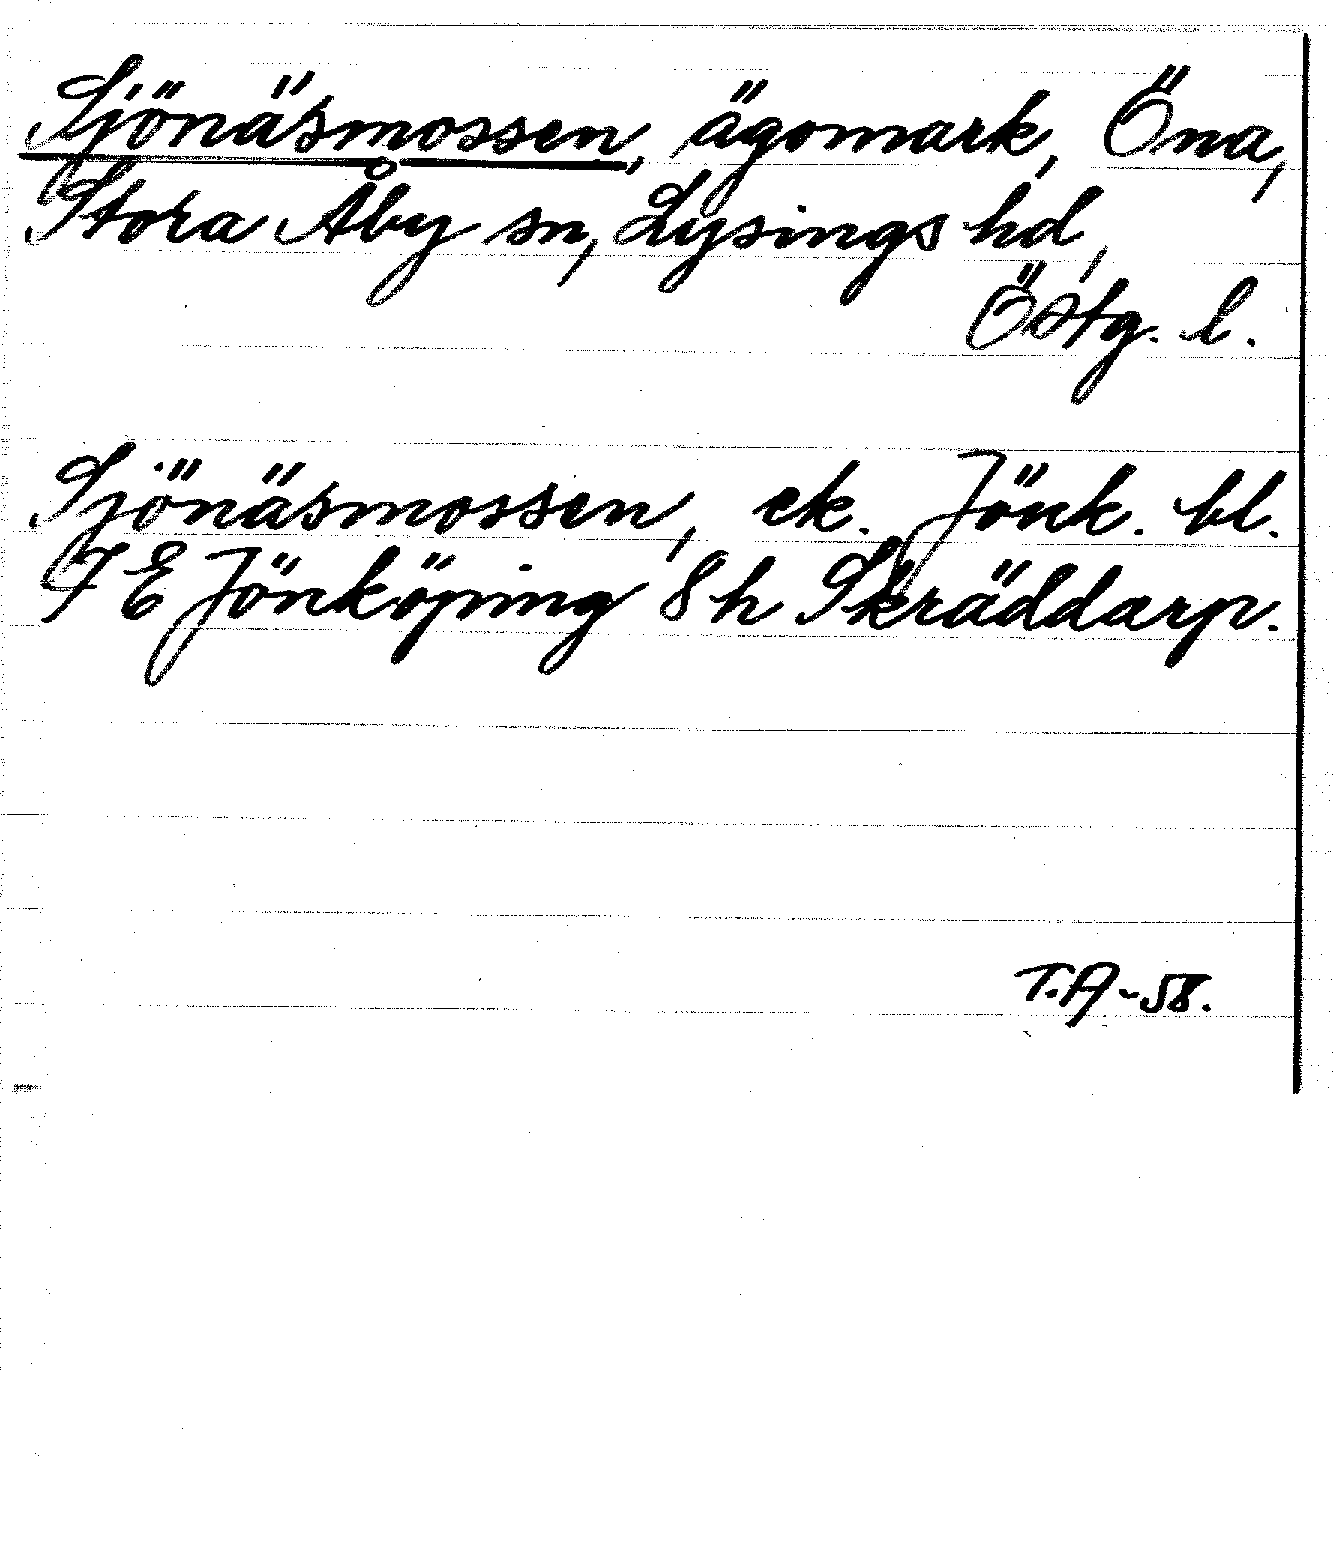 Sjönäsmossen, ägomark, Öna,
Stora Åby sn, Lysings hd,
Östg. l.
Sjönäsmossen, ek. Jönk. bl.
7 E Jönköping 8 h Skräddarp.
T.A-58.